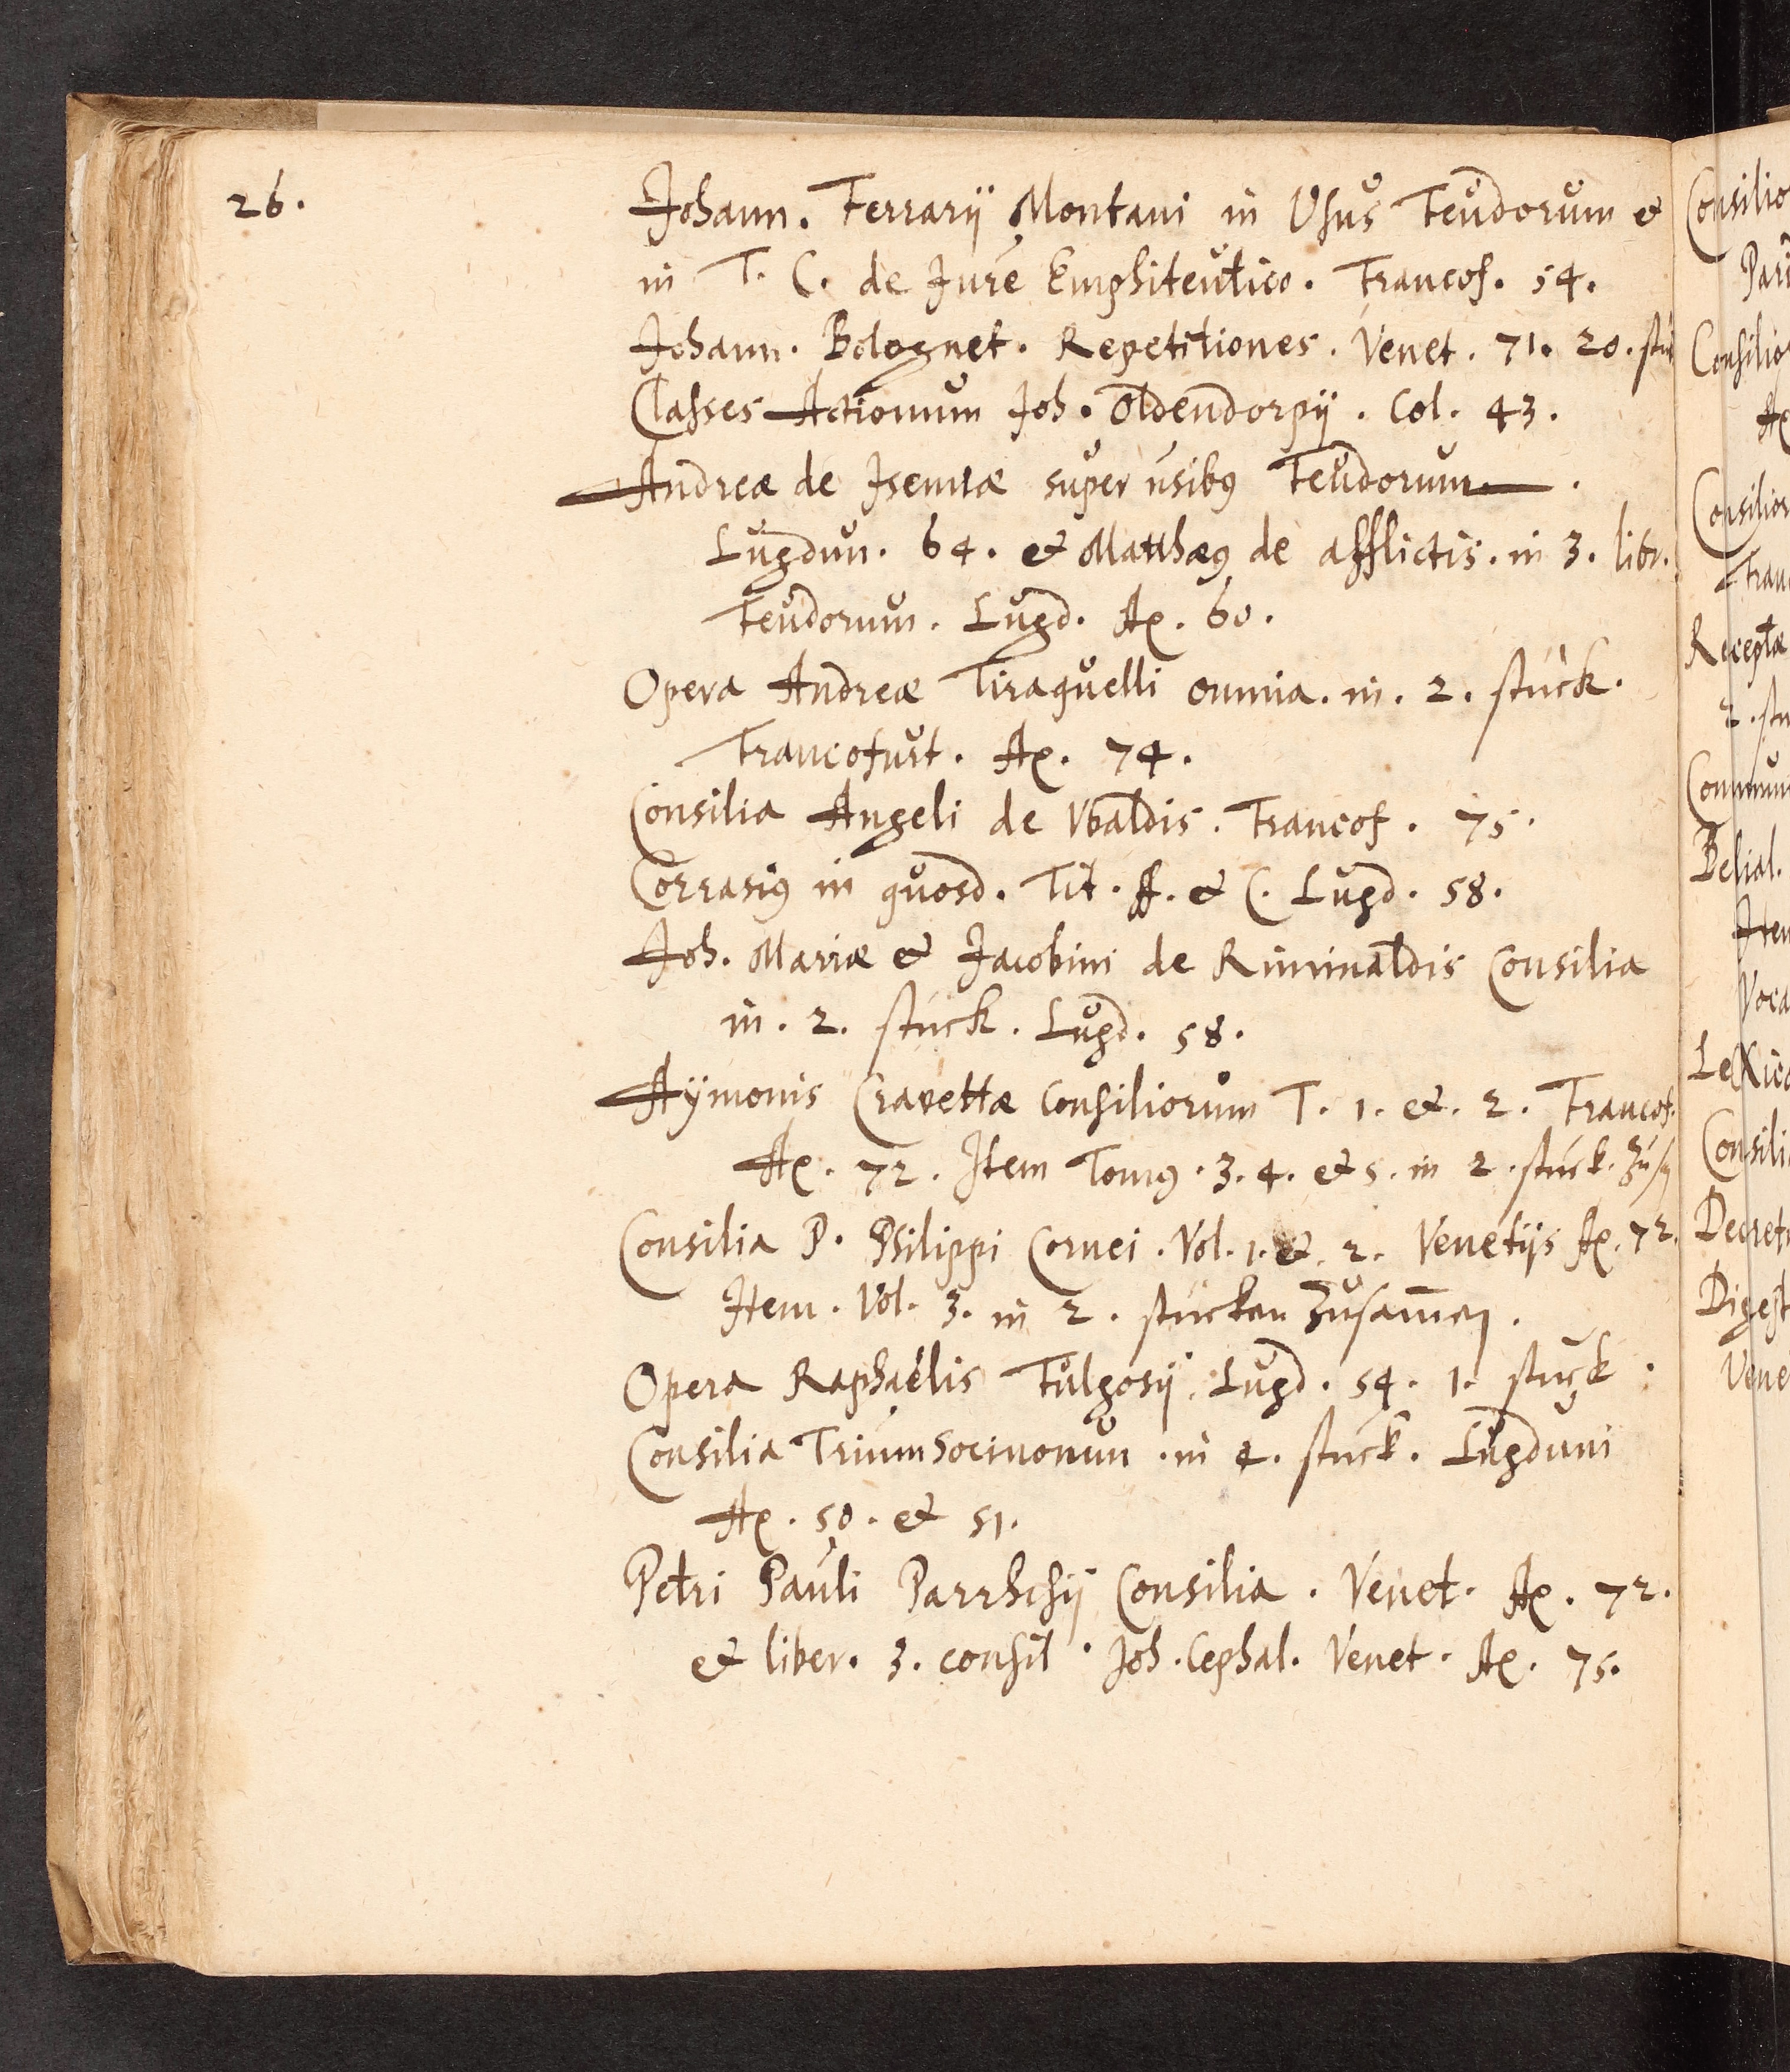 26.
Johann. Ferrarij Montani in Usus Feudorum &
in T. C. de Jure Emphiteutico. Francof. 54.
Johann. Bolognet. Repetitiones. Venet. 71. 20. stü
Classes Actionum Joh. Oldendorpij. Col. 43.
Andreæ de Iserniæ super usibus Feudorum.
Lugdun. 64. & Matthæus de afflictis. in 3. libr.
Feudorum. Lugd. Aō. 60.
Opera Andreæ Tiraquelli omnia. in. 2. stück.
Francofurt. Aō. 74.
Consilia Angeli de Ubaldis. Francof. 75.
Corrasius in quosd. Tit. ff. & C. Lugd. 58.
Joh. Mariæ & Jacobini de Riminaldis Consilia
in. 2. stück. Lugd. 58.
Aÿmonis Cravettæ Consiliorum T. 1. et. 2. Francof.
Aō. 72. Item Tomus. 3. 4. et 5. in 2. stück.
Consilia P. Philippi Cornei. Vol. 1. & 2. Venetijs Aō. 72.
Item. Vol. 3. in 2. stücken Zusam̄en.
Opera Raphaëlis Fulgosij. Lugd. 54. 1. stück.
Consilia Trium Socinorum. in 4. stück. Lugduni
Aō. 50. & 51.
Petri Pauli Parrhsij Consilia. Venet. Aō. 72.
& liber. 3. consil. Joh. Cephal. Venet. Aō. 75.
Consilio
Pari
Consilior
Consilior
Fran
Receptæ
2. stü
Commun
Belial.
Item
Voca
Lexico
Consili
Decret
Digest
Vene